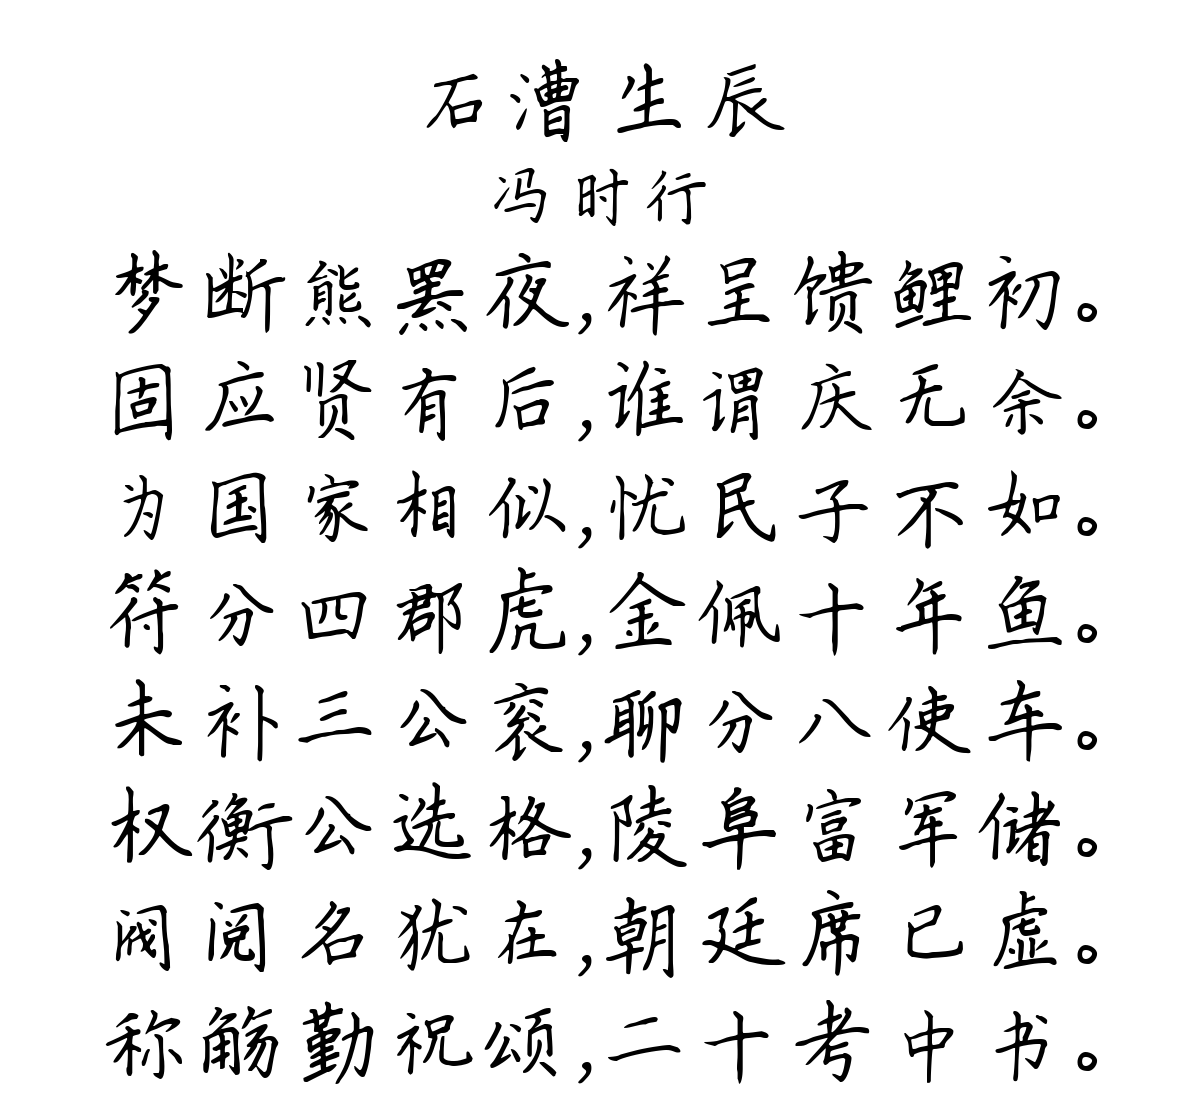 石漕生辰
冯时行
梦断熊罴夜,祥呈馈鲤初。
固应贤有后,谁谓庆无余。
为国家相似,忧民子不如。
符分四郡虎,金佩十年鱼。
未补三公衮,聊分八使车。
权衡公选格,陵阜富军储。
阀阅名犹在,朝廷席已虚。
称觞勤祝颂,二十考中书。